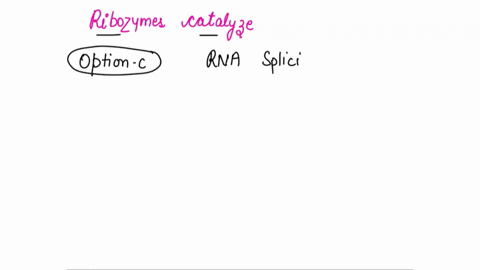 Ribozymes catalyze
Option-c RNA Splici